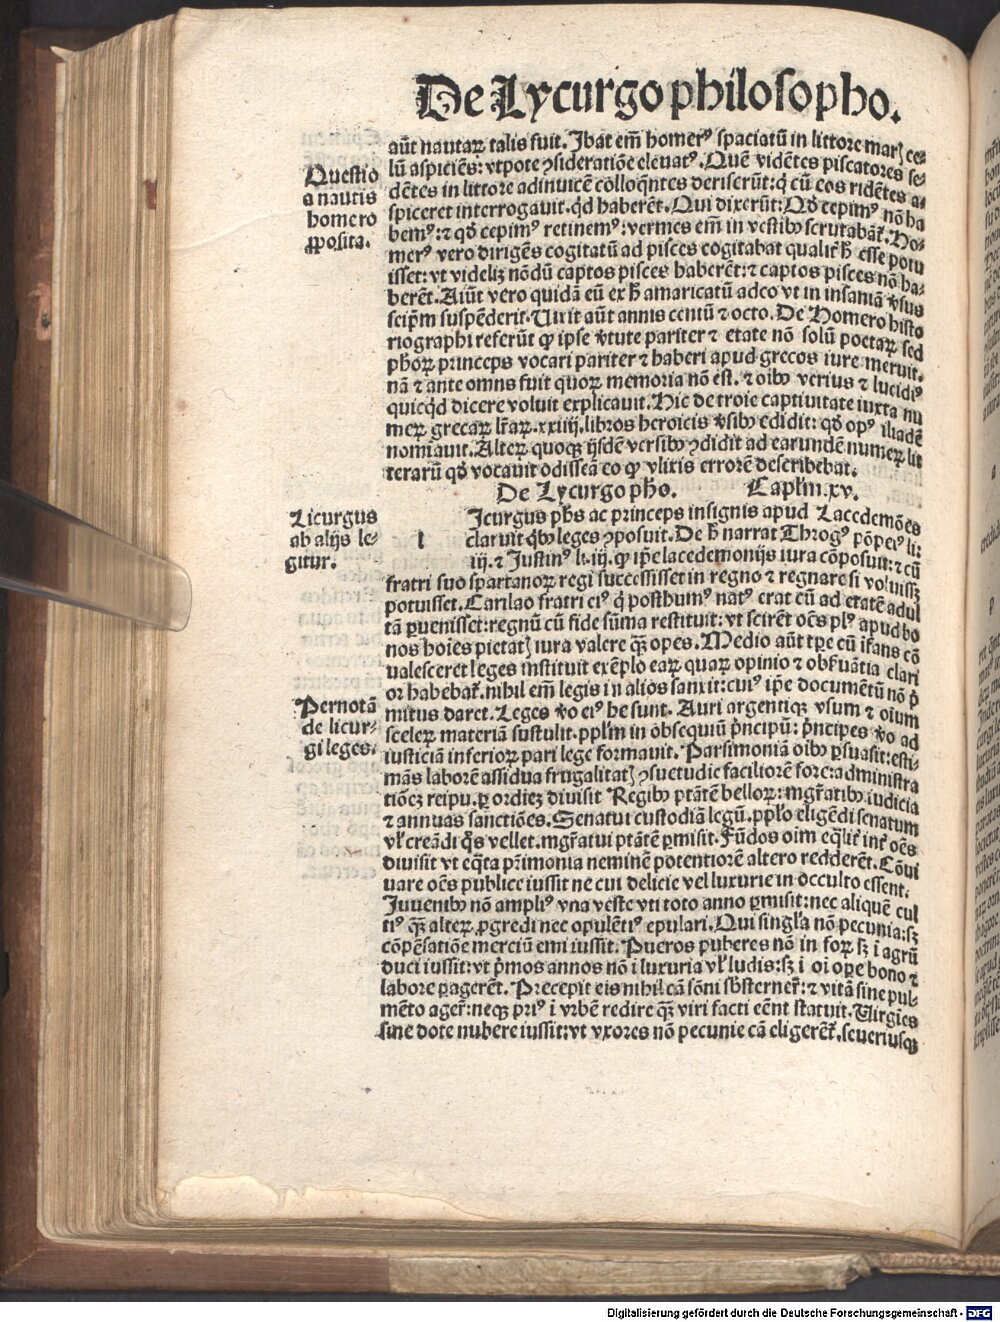 De Lycurgo philosopho.
aūt nautaꝝ talis fuit. Ibat em̄ homerꝰ spaciatū in littore marꝭ ce⸗
lū aspiciēs: vtpote ꝯsideratiōe eleuatꝰ. Quē vidētes piscatores se⸗
dētes in littore adinuicē colloqn̄tes deriserūt: q̄ cū eos ridētes a⸗
spiceret interrogauit. qd haberēt. Qui dixerūt: Qd̛ cepimꝰ nō ha
bemꝰ: ⁊ qd̛ cepimꝰ retinemꝰ: vermes em̄ in vestibꝰ scrutabāt̛. Ho⸗
merꝰ vero dirigēs cogitatū ad pisces cogitabat qualit̛ h̄ esse potu
isset: vt videlꝫ nōdū captos pisces haberēt: ⁊ captos pisces nō ha⸗
berēt. Aiūt vero quidā eū ex h̄ amaricatū adeo vt in insaniā v̛sus
seip̄m suspēderit. Uixit aūt annis centū ⁊ octo. De Homero histo
riographi referūt ꝙ ipse v̛tute pariter ⁊ etate nō solū poetaꝝ sed
ph̄oꝝ princeps vocari pariter ⁊ haberi apud grecos iure meruit.
nā ⁊ ante omns fuit quoꝝ memoria nō est. ⁊ oibꝰ verius ⁊ lucidiꝰ
quicq̇d dicere voluit explicauit. Hic de troie captiuitate iuxta nu
meꝝ grecaꝝ lr̄aꝝ. xxiiij. libros heroicis v̛sibꝰ edidit: qd̛ opꝰ iliadē
nomīauit. Alteꝝ quoqꝫ ijsdē versibꝰ ꝯdidit ad earundē numeꝝ lit
terarū qd̛ vocauit odisseā eo ꝙ vlixis errorē describebat.
De Lycurgo ph̄o. Capl̄m. xv.
l Icurgus ph̄s ac princeps insignis apud Lacedemōes
claruit q̇bꝰ leges ꝯposuit. De h̄ narrat Throgꝰ pōpeiꝰ li:
iij. ⁊ Justinꝰ li. iij. ꝙ ip̄e lacedemonijs iura cōposuit: ⁊ cū
fratri suo spartanoꝝ regi successisset in regno ⁊ regnare si voluissꝫ
potuisset. Carilao fratri eiꝰ q̇ posthumꝰ natꝰ erat cū ad etatē adul
tā ꝑuenisset: regnū cū fide sūma restituit: vt scirēt oēs plꝰ apud bo
nos hoīes pietatꝭ iura valere qꝫ̄ opes. Medio aūt tp̄e cū īfans cō
ualesceret leges instituit exēplo eaꝝ quaꝝ opinio ⁊ obẜuātia clari
or habebat̛. nihil em̄ legis in alios sanxit: cuiꝰ ip̄e documētū nō p̄
mitus daret. Leges v̛o eiꝰ he sunt. Auri argentiqꝫ vsum ⁊ oīum
sceleꝝ materiā sustulit. ppl̄m in obsequiū p̄ncipū: p̄ncipes v̛o ad
iusticiā inferioꝝ pari lege formauit. Parsimoniā oibꝰ ꝑsuasit: esti⸗
māns laborē assidua frugalitatꝭ ꝯsuetudie faciliorē fore: administra
tiōeꝫ reipu. ꝑ ordieꝫ diuisit Regibꝰ ptātē belloꝝ: mgr̄atibꝰ iudicia
⁊ annuas sanctiōes. Senatui custodiā legū. pplo eligēdi senatum
vl̛ creādi q̇s vellet. mgr̄atui ptātē ꝑmisit. Fūdos oim eql̛it̛ int̛ oēs
diuisit vt eq̄ta pr̄imonia neminē potentiorē altero redderēt. Cōui
uare oēs publice iussit ne cui delicie vel luxurie in occulto essent.
Juuenibꝰ nō ampliꝰ vna veste vti toto anno ꝑmisit: nec aliquē cul
tiꝰ qꝫ̄ alteꝝ ꝓgredi nec opulētiꝰ epulari. Qui singl̛a nō pecunia: sꝫ
cōpēsatiōe merciū emi iussit. Pueros puberes nō in foꝝ sꝫ ī agrū
duci iussit: vt p̄mos annos nō ī luxuria vl̛ ludis: sꝫ ī oī ope bono ⁊
labore ꝑagerēt. Precepit eis nihil cā sōni sb̛sterner̛: ⁊ vitā sine pul⸗
mēto ager̛: neqꝫ priꝰ ī vrbē redire qꝫ̄ viri facti eēnt statuit. Uirgīes
sine dote nubere iussit: vt vxores nō pecunie cā eligerēt̛. seueriusqꝫ
Questio
a nautis
homero
ꝓposita.
Licurgus
ab alijs le⸗
gitur.
Pernotā
de licur⸗
gi leges.
Digitalisierung gefördert durch die Deutsche Forschungsgemeinschaft - DFG